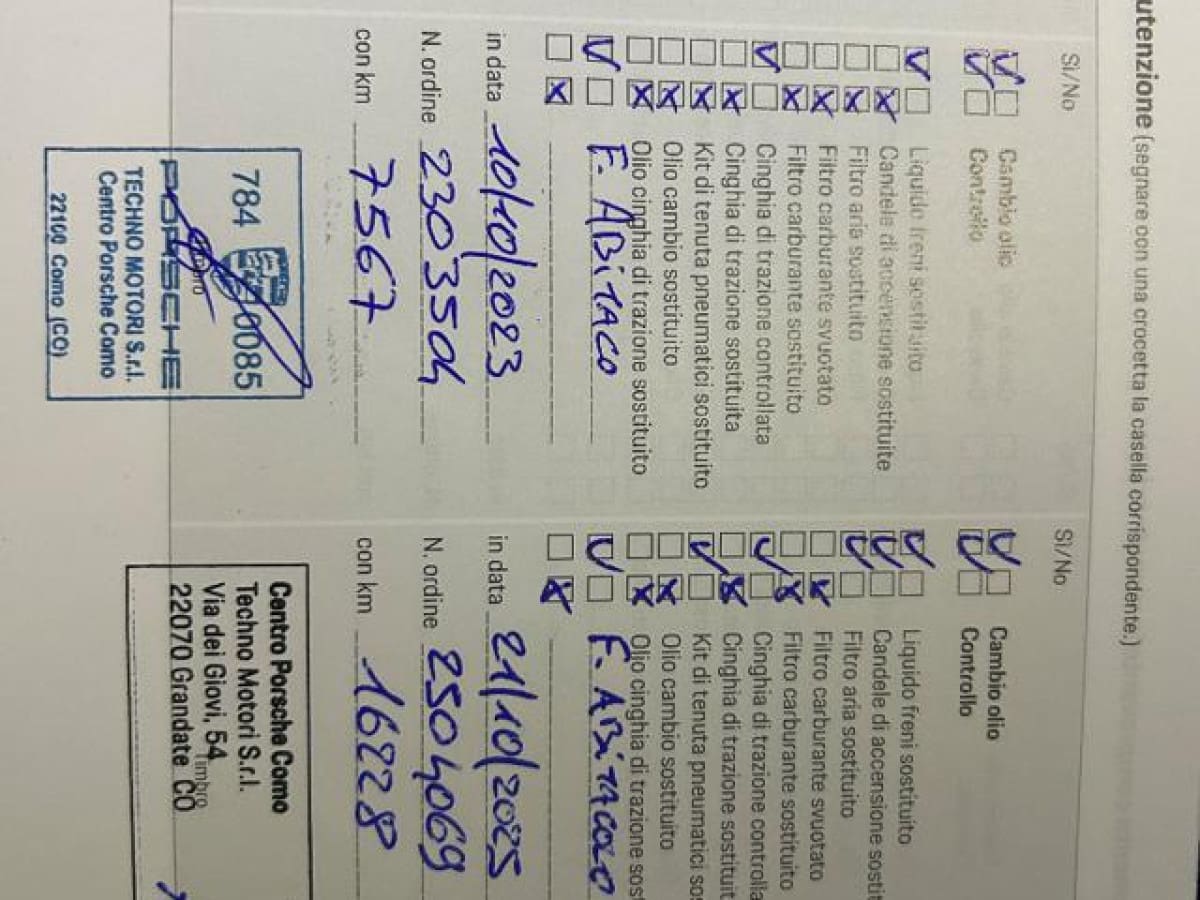 utenzione (segnare con una crocetta la casella corrispondente.)
Sì/No
Cambio olio
Controllo
Liquido freni sostituito
Candele di accensione sostituite
Filtro aria sostituito
Filtro carburante svuotato
Filtro carburante sostituito
Cinghia di trazione controllata
Cinghia di trazione sostituita
Kit di tenuta pneumatici sostituito
Olio cambio sostituito
Olio cinghia di trazione sostituito
F. ABITACO
in data 10/10/2023
N. ordine 2303504
con km 7567
784 0085
PORSCHE
TECHNO MOTORI S.r.l.
Centro Porsche Como
22100 Como (CO)
Sì/No
Cambio olio
Controllo
Liquido freni sostituito
Candele di accensione sostit
Filtro aria sostituito
Filtro carburante svuotato
Filtro carburante sostituito
Cinghia di trazione controlla
Cinghia di trazione sostituit
Kit di tenuta pneumatici so
Olio cambio sostituito
Olio cinghia di trazione sos
F. ABITACOLO
in data 21/10/2025
N. ordine 2504069
con km 16228
Centro Porsche Como
Techno Motori S.r.l.
Via dei Giovi, 54
Timbro
22070 Grandate CO